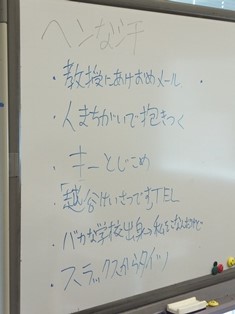 ヘンな汗
・教授にあけおめメール
・人まちがいで抱きつく
・キーとじこめ
・「越谷けいさつです」TEL
・バカな学校出身の私をこんなものまで
・スラックスからタイツ